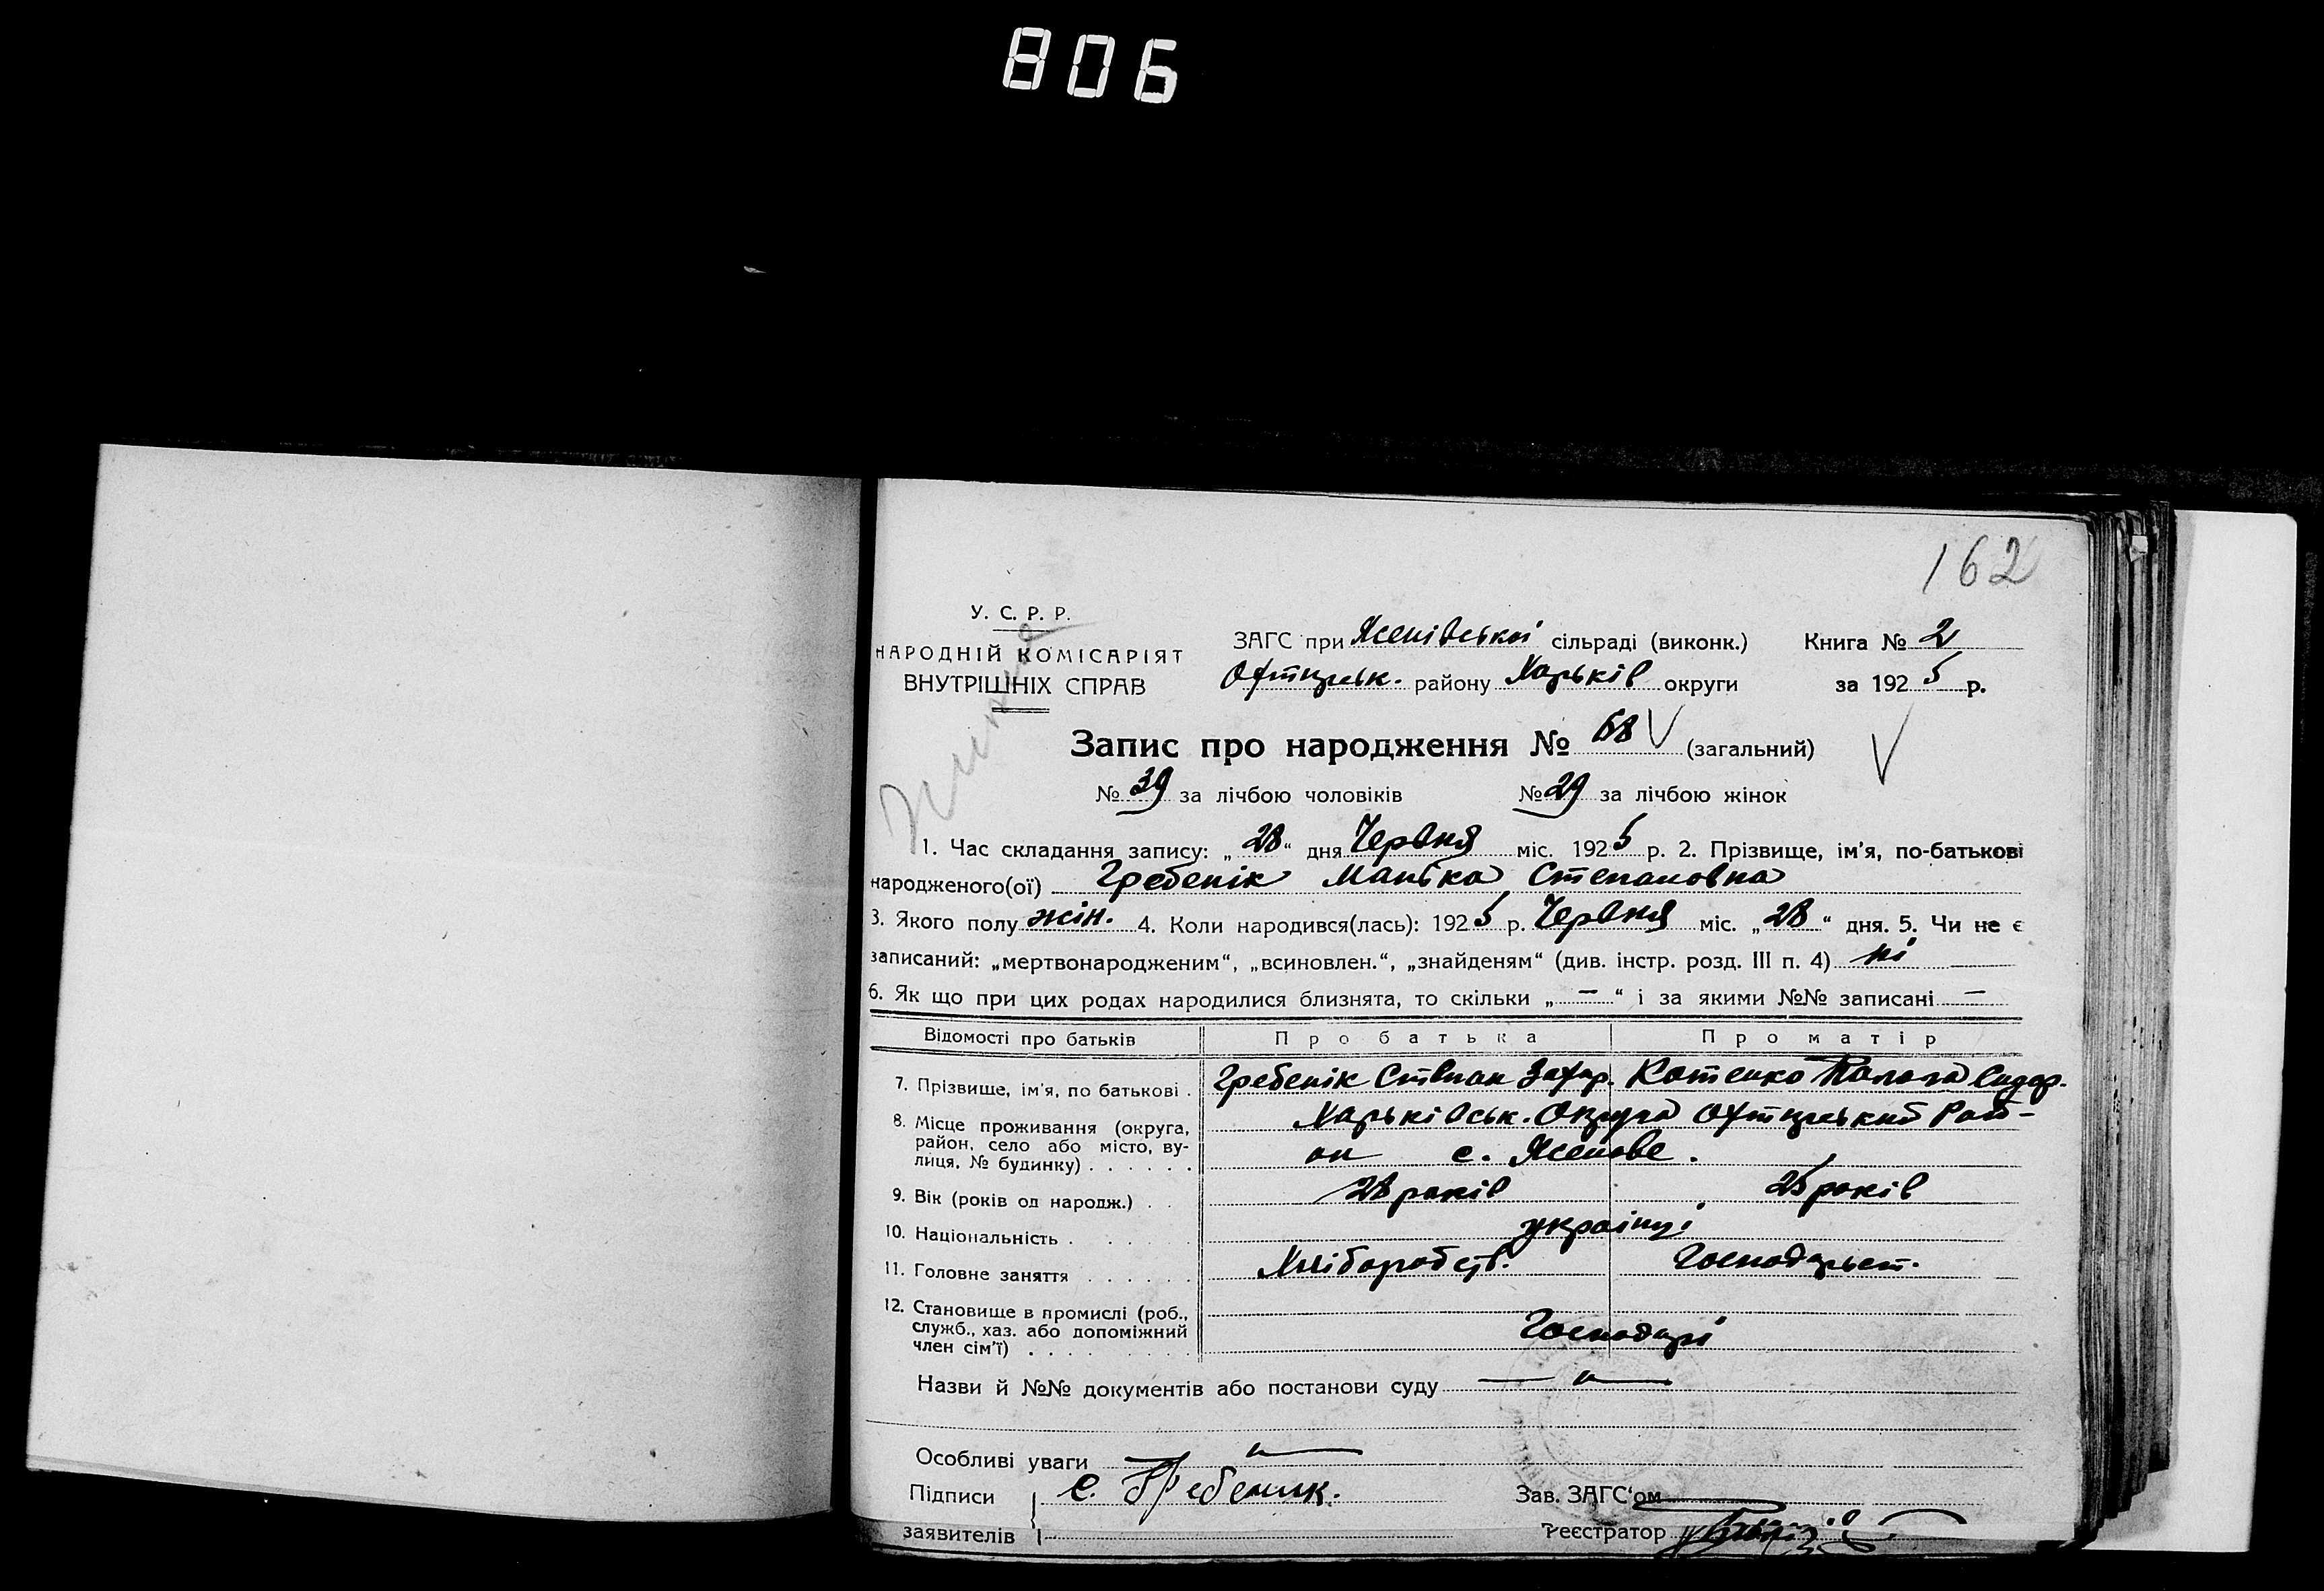 806
162
У. С. Р. Р.
НАРОДНІЙ КОМІСАРІЯТ
ВНУТРІШНІХ СПРАВ
ЗАГС при Ясенівській сільраді (виконк.) Книга № 2
Охтирськ. району Харьків округи за 1925 р.
Запис про народження № 68 V (загальний) V
№ 39 за лічбою чоловіків № 29 за лічбою жінок
1. Час складання запису: „28“ дня Червня міс. 1925 р. 2. Прізвище, ім'я, по-батькові
народженого(ої) Гребенік Манька Степановна
3. Якого полу жін. 4. Коли народився(лась): 1925 р. Червня міс. „28“ дня. 5. Чи не є
записаний: „мертвонародженим“, „всиновлен.“, „знайденям“ (див. інстр. розд. III п. 4) ні
6. Як що при цих родах народилися близнята, то скільки „—“ і за якими №№ записані —
Відомості про батьків Про батька Про матір
7. Прізвище, ім'я, по батькові . Гребенік Степан Захар. Котенко Палага Сидор.
8. Місце проживання (округа, район, село або місто, вулиця, № будинку) . . . . . . Харьківськ. Округа Охтирський Рай-
он с. Ясенове.
9. Вік (років од народж.) . . 28 років 25 років
10. Національність . . . . . українці
11. Головне заняття . . . . . . Хліборобств. Господарст.
12. Становище в промислі (роб., служб., хаз. або допоміжний член сім'ї) . . . . . . . . Господарі
Назви й №№ документів або постанови суду — „ —
Особливі уваги — „ —
Підписи С. Гребеник. Зав. ЗАГС'ом
заявителів Реєстратор